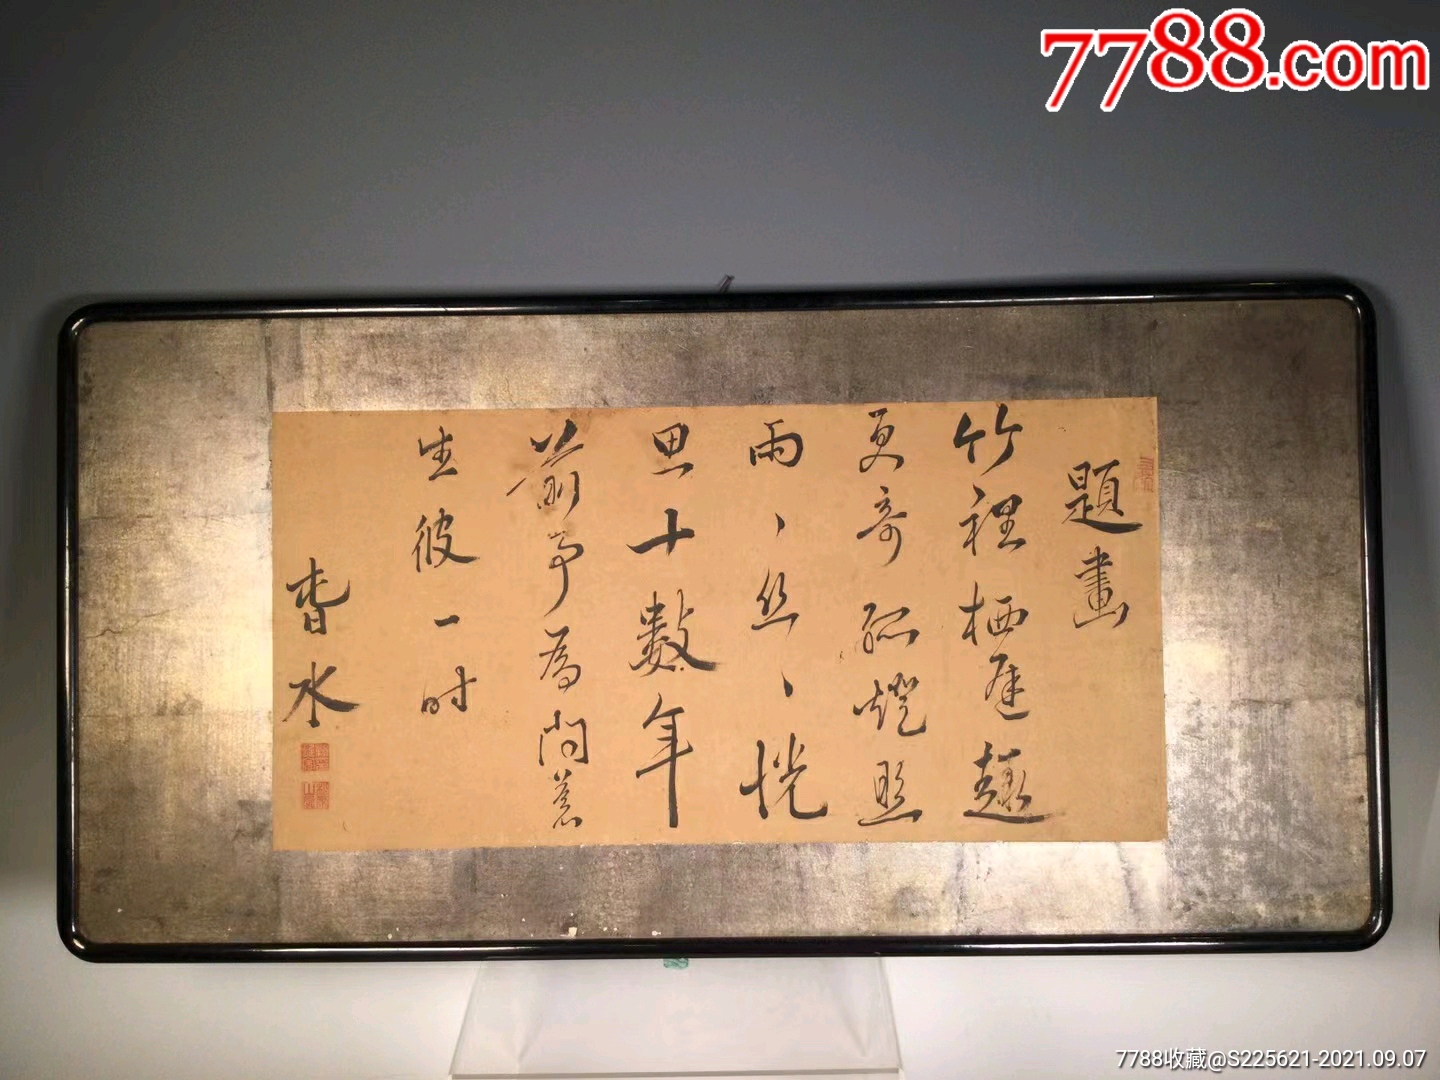 7788.com
題畫
竹裡栖遲趣
更奇孤燈照
雨丶絲丶恍
思十數年
前事為問蒼
生彼一时
杳水
7788收藏@S225621-2021.09.07